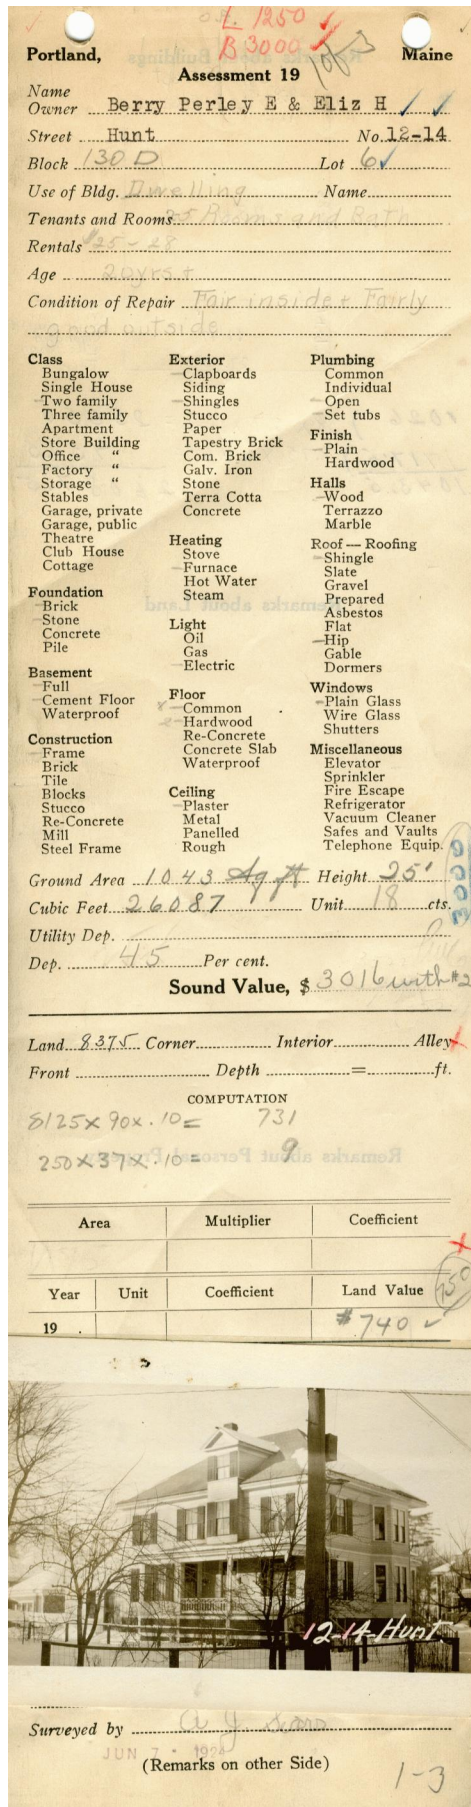 L 1250
B 3000
1 of 3
Portland, Maine
Assessment 19
Name
Owner Berry Perley E & Eliz H
Street Hunt No. 12-14
Block 130 D Lot 6
Use of Bldg. Dwelling Name
Tenants and Rooms 2-5 Rooms and Bath
Rentals $25-28
Age 20 yrs +
Condition of Repair Fair inside + Fairly
good outside
Class
Bungalow
Single House
Two family
Three family
Apartment
Store Building
Office "
Factory "
Storage "
Stables
Garage, private
Garage, public
Theatre
Club House
Cottage
Foundation
Brick
Stone
Concrete
Pile
Basement
Full
Cement Floor
Waterproof
Construction
Frame
Brick
Tile
Blocks
Stucco
Re-Concrete
Mill
Steel Frame
Exterior
Clapboards
Siding
Shingles
Stucco
Paper
Tapestry Brick
Com. Brick
Galv. Iron
Stone
Terra Cotta
Concrete
Heating
Stove
Furnace
Hot Water
Steam
Light
Oil
Gas
Electric
Floor
Common
Hardwood
Re-Concrete
Concrete Slab
Waterproof
Ceiling
Plaster
Metal
Panelled
Rough
Plumbing
Common
Individual
Open
Set tubs
Finish
Plain
Hardwood
Halls
Wood
Terrazzo
Marble
Roof — Roofing
Shingle
Slate
Gravel
Prepared
Asbestos
Flat
Hip
Gable
Dormers
Windows
Plain Glass
Wire Glass
Shutters
Miscellaneous
Elevator
Sprinkler
Fire Escape
Refrigerator
Vacuum Cleaner
Safes and Vaults
Telephone Equip.
3000
Ground Area 1043 Sq ft Height 25'
Cubic Feet 26087 Unit 18 cts.
Utility Dep.
Dep. 45 Per cent.
Sound Value, $ 3016 with #2
Land 8375 Corner Interior Alley
Front Depth = ft.
COMPUTATION
8125 x 90 x .10 = 731
250 x 37 x .10 = 9
Area Multiplier Coefficient
Year Unit Coefficient Land Value
19 . $740
12-14-Hunt.
Surveyed by
JUN 7 - 1924
(Remarks on other Side)
1-3